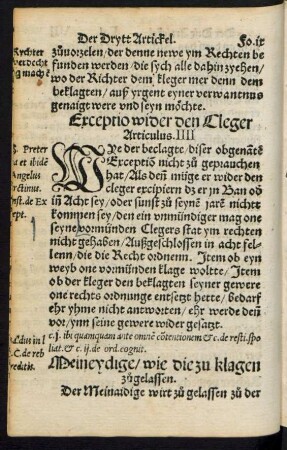 Der Drytt Artickel. Fo.ix
Rychter
verdecht
zůuorzelen/der denne newe ym Rechten be
funden werden/die sych alle dahin zyehen/
wo der Richter dem kleger mer denn dem
beklagten/auß yrgent eyner verwantnus
genaigt were vnd seyn möchte.
Exceptio wider den Cleger
Articulus.IIII
WJe der beclagte/diser obgenāte
Exceptiō nicht zů geprauchen
hat/Als deñ müge er wider den
cleger excipiern dz er in Ban oð
iñ Acht sey/oder sunst zů seynē jarē nicht
kommen sey/den ein vnmündiger mag one
seyne vormünden Clegers stat ym rechten
nicht gehaben/Außgeschlossen in acht fel-
lenn/die die Recht ordnenn. Item ob eyn
weyb one vormünden klage woltte/Item
ob der kleger den beklagten seyner gewere
one rechts ordnunge entsetzt hette/bedarf
ehr yhme nicht antworten/ehr werde denn
vor/ynn seine gewere wider gesatzt.
Preter
Angelus
Aretinus.
Inst.de Ex
cept.
c.j. ibi quamquam ante omnē cōtentionem & c.de resti.spo
liat.& c.ij.de ord.cognit.
Meineydige/wie die zu klagen
zůgelassen.
Der Meinaidige wirt zů gelassen zů der